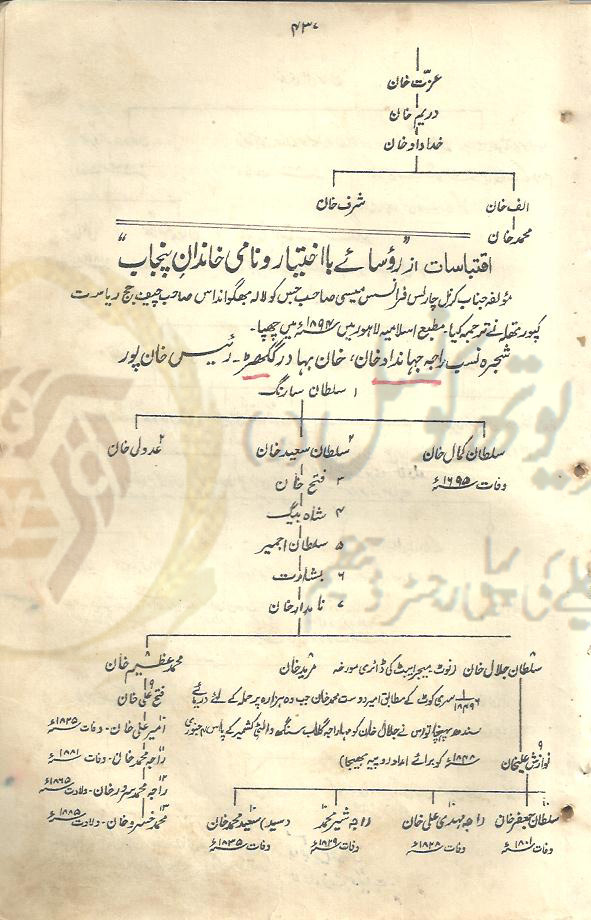 ۴۳۷
عزّت خان
دریم خان
خدا داد خان
الف خان شرف خان
محمد خان
اقتباسات از "رؤسائے بااختیار و نامی خاندانِ پنجاب"
مؤلفہ جناب کرنل چارلس فرانسس میسی صاحب جس کو لالہ بھگوانداس صاحب چیف جج ریاست
کپورتھلہ نے ترجمہ کیا۔ مطبع اسلامیہ لاہور میں ۱۸۹۴ء میں چھپا۔
شجرہ نسب راجہ جہانداد خان، خان بہادر گکھڑ۔ رئیس خان پور
۱ سلطان سارنگ
سلطان کمال خان ۲ سلطان سعید خان ۲ عدولی خان
وفات ۱۶۹۵ء
۳ فتح خان
۴ شاہ بیگ
۵ سلطان اجمیر
۶ بشارت
۷ نامدار خان
۸ سلطان جلال خان (نوٹ میجر ایبٹ کی ڈائری مورخہ مرید خان ۸ محمد عظیم خان
۶/۱/۱۸۴۹ سری کوٹ کے مطابق امیر دوست محمد خان جب وہ ہزارہ پر حملہ کے لئے دریائے
سندھ پہنچا تو اس نے جلال خان کو مہاراجہ گلاب سنگھ والئی کشمیر کے پاس جنوری
۱۸۴۸ء کو برائے امداد روپیہ بھیجا)
۹ نوازش علیخان
۹ فتح علی خان
امیر علی خان - وفات ۱۸۲۵ء
۱۱ راجہ محمد خان - وفات ۱۸۸۱ء
۱۲ راجہ محمد سرور خان - ولادت ۱۸۶۵ء
۱۳ محمد خسرو خان - ولادت ۱۸۸۵ء
سلطان جعفر خان راجہ مہندی علی خان راجہ شیر محمد (سید) سعید محمد خان
وفات ۱۸۰۱ء وفات ۱۸۲۸ء وفات ۱۸۲۹ء وفات ۱۸۳۵ء